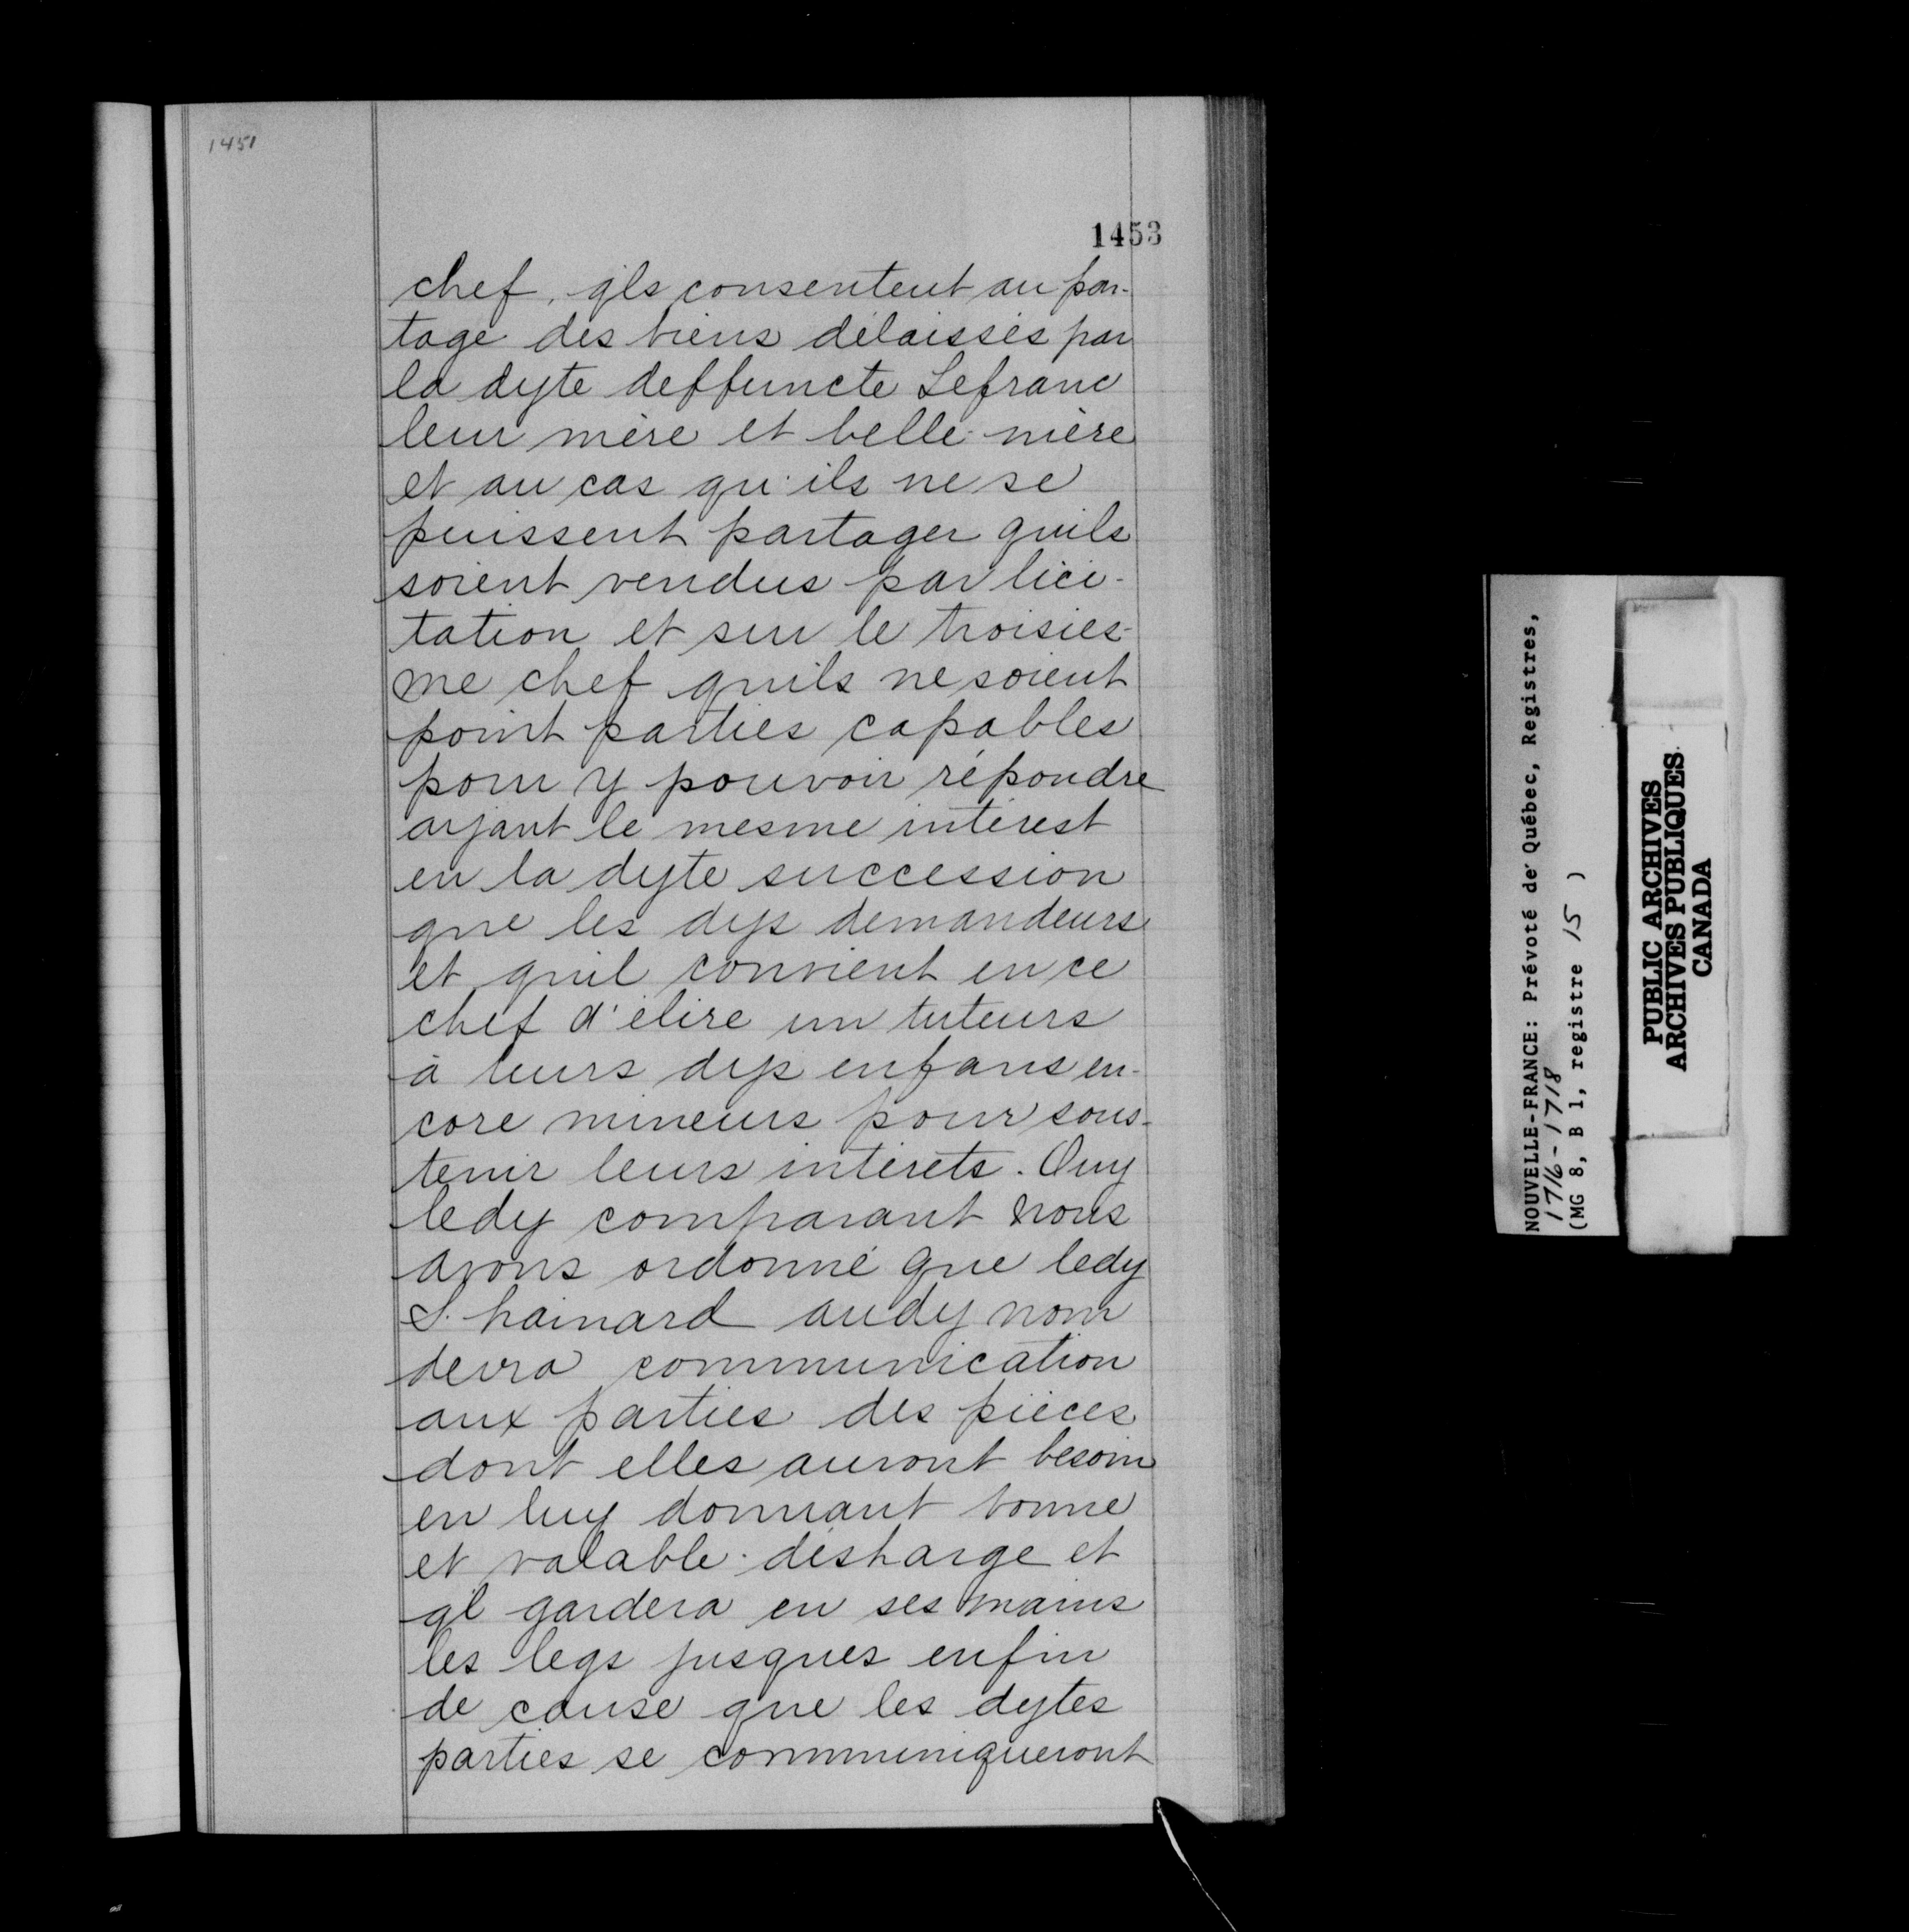 1451
1453
chef, qls consentent au par-
tage des biens délaissés par
la dyte deffuncte Lefranc
leur mère et belle-mère
et au cas qu'ils ne se
puissent partager quils
soient vendus par lici-
tation et sur le troisies-
me chef quils ne soient
point parties capables
pour y pouvoir répondre
ayant le mesme intérest
en la dyte succession
que les dys demandeurs
et quil convient en ce
chef d'élire un tuteurs
à leurs dys enfans en-
core mineurs pour sous-
tenir leurs intérets. Ouy
ledy comparant nous
avons ordonné que ledy
S. hainard audy nom
devra communication
aux parties des pièces
dont elles auront besoin
en luy donnant bonne
et valable désharge et
ql gardera en ses mains
les legs jusques enfin
de cause que les dytes
parties se communiqueront
NOUVELLE-FRANCE: Prévoté de Québec, Registres,
1716-1718
(MG 8, B 1, registre 15 )
PUBLIC ARCHIVES
ARCHIVES PUBLIQUES
CANADA